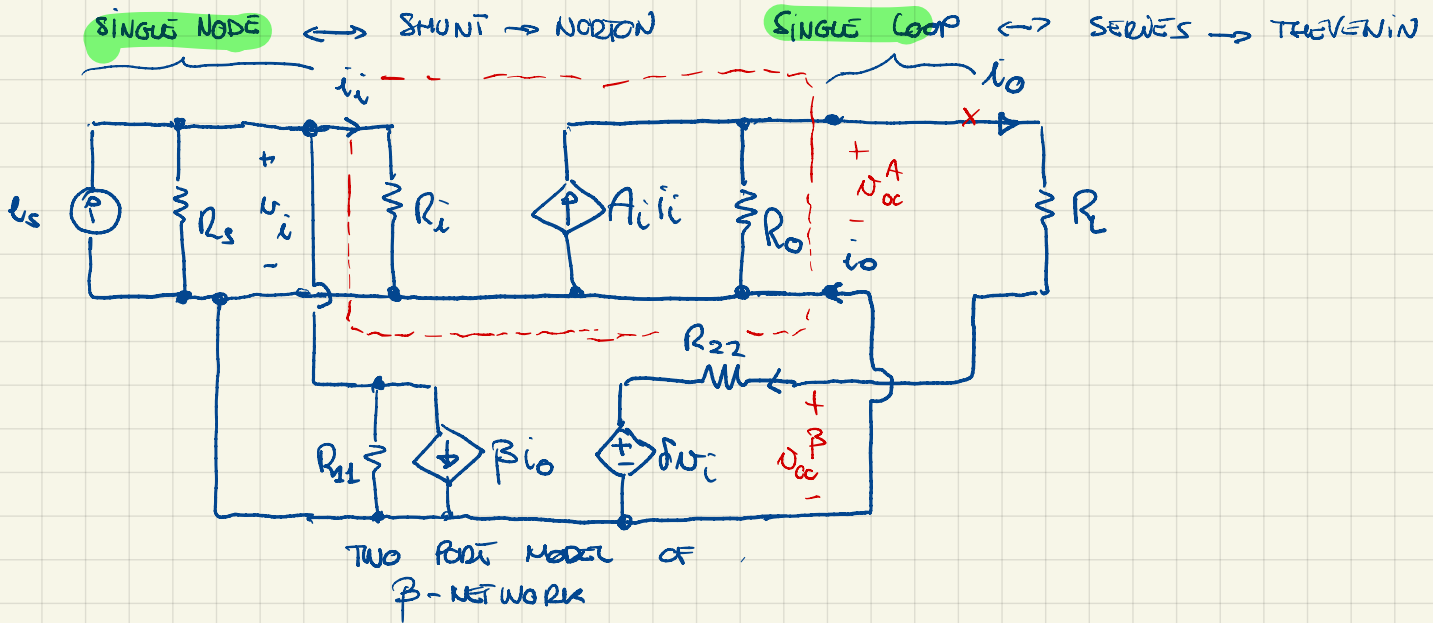 SINGLE NODE ↔ SHUNT → NORTON
SINGLE LOOP ↔ SERIES → THEVENIN
i_i
i_o
+
v_i
-
i_s
R_s
R_i
A_i i_i
R_o
+
v_oc^A
-
i_o
R_L
R_22
R_11
β i_o
+
-
δv_i
+
v_oc^β
-
TWO PORT MODEL OF
β-NETWORK